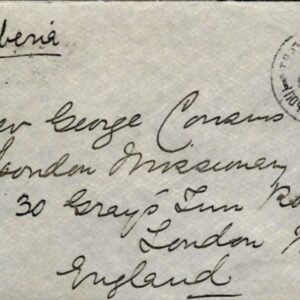 beria
ev George Cousins
London Missionary
30 Gray's Inn Ro
London
England